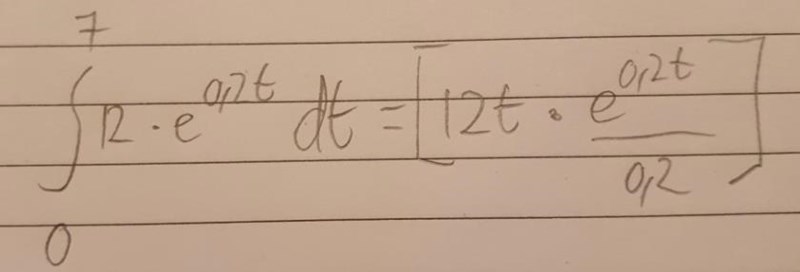 7
∫ 12 · e^{0,2t} dt = [12t · e^{0,2t} / 0,2]
0